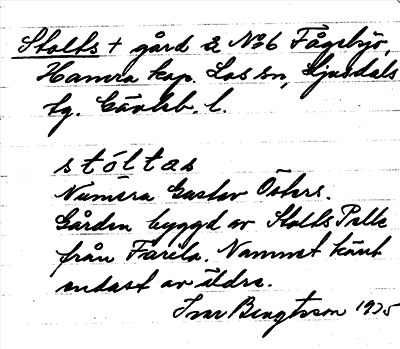 Stolts + gård å No 6 Fågelsjö,
Hamra kap. Los sn, Ljusdals
tg. Gävleb. l.
stóltas
Numera Gustav Östers.
Gården byggd av Stolts Pelle
från Färila. Namnet känt
endast av äldre.
Ivar Bengtsson 1935